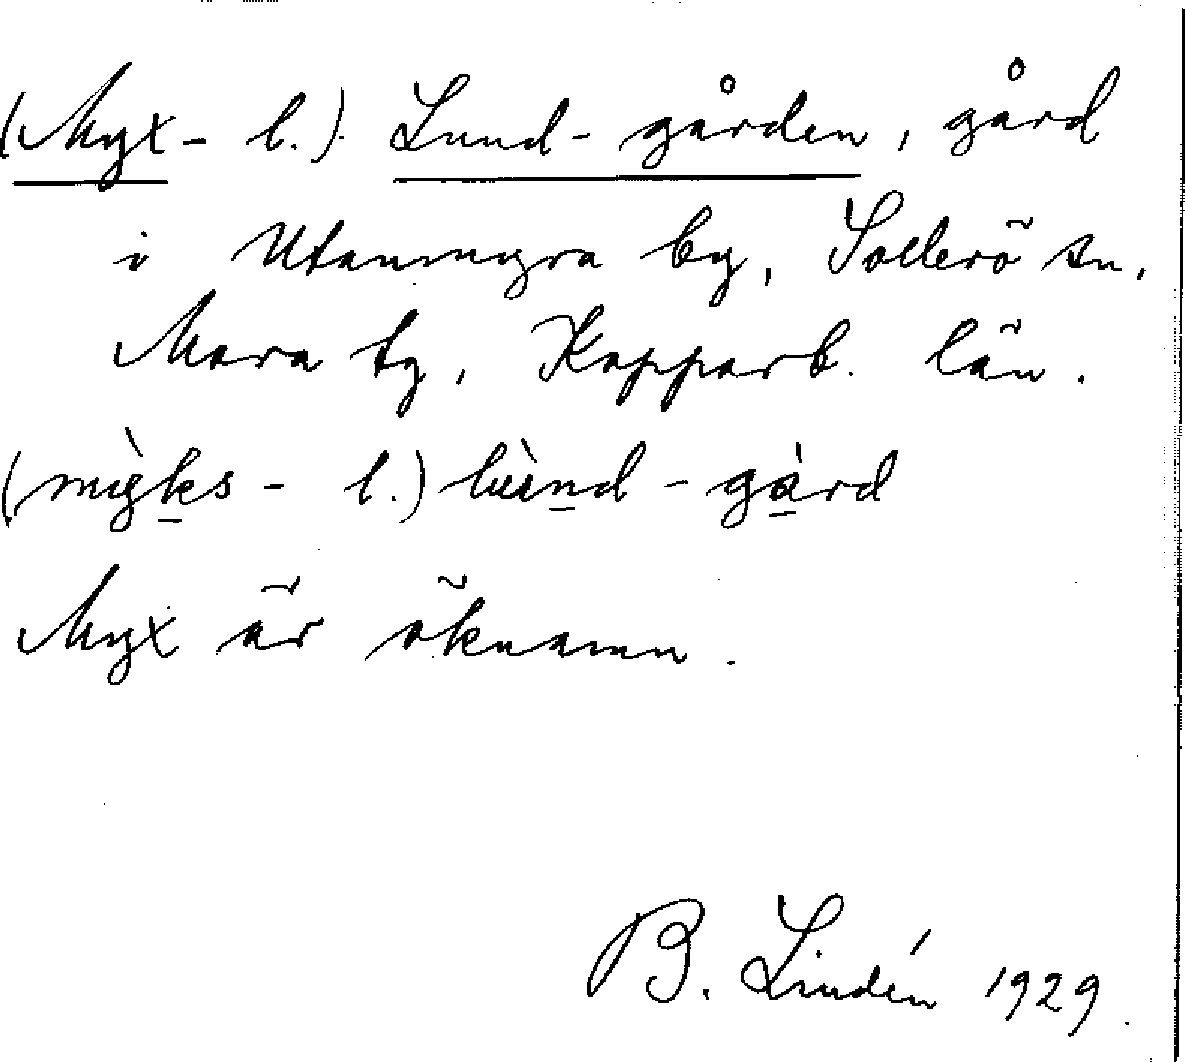 (Myx- l.) Lund-gården, gård
i Utanmyra by, Sollerö sn,
Mora tg, Kopparb. län.
(mỳk̲s - l.) lùn̲d-gà̲rd
Myx är öknamn.
B. Lindén 1929.